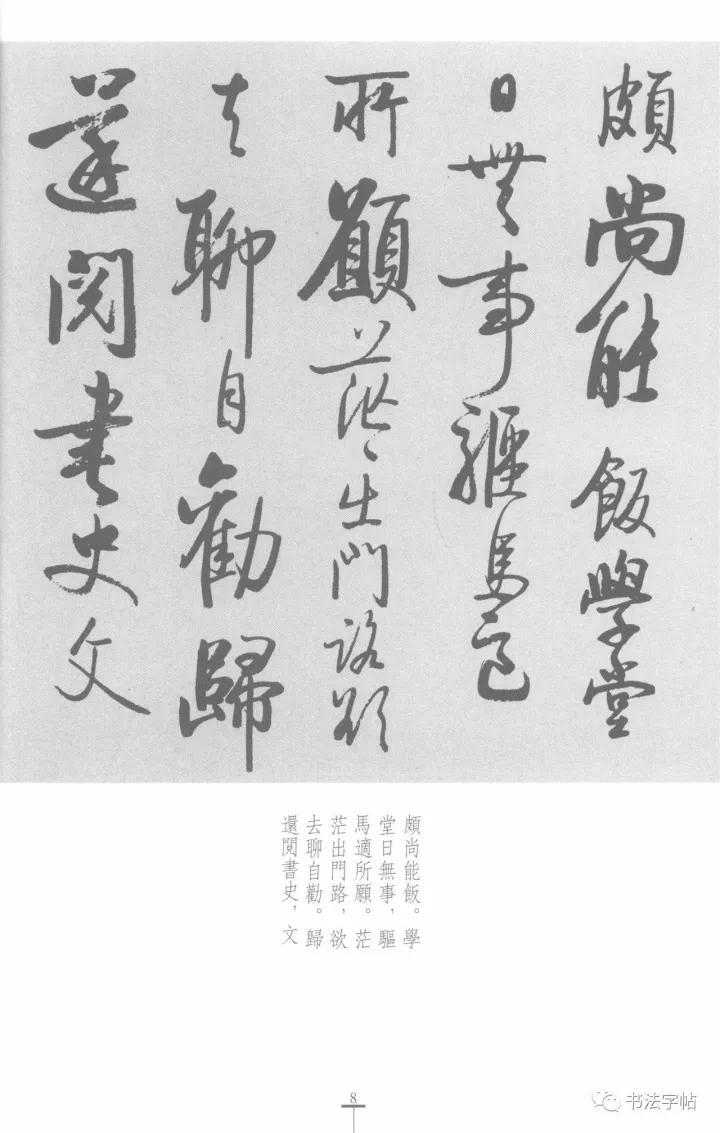 頗尚能飯學堂
日無事驅馬適
所願茫々出門路欲
去聊自勸歸
還閱書史文
頗尚能飯。學
堂日無事，驅
馬適所願。茫
茫出門路，欲
去聊自勸。歸
還閱書史，文
8
书法字帖